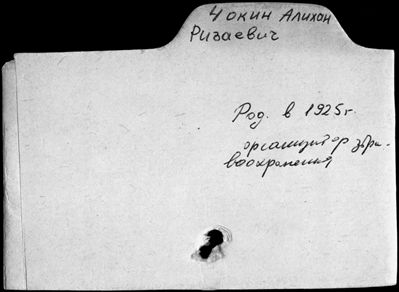 Чокин Алихан
Ризаевич
Род. в 1925 г.
организатор здра-
воохранения